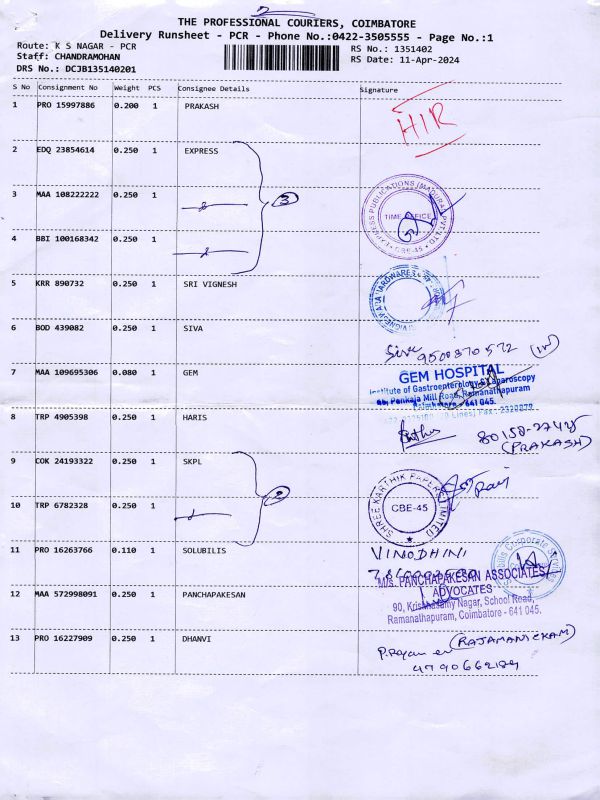 2
THE PROFESSIONAL COURIERS, COIMBATORE
Delivery Runsheet - PCR - Phone No.:0422-3505555 - Page No.:1
Route: K S NAGAR - PCR
RS No.: 1351402
Staff: CHANDRAMOHAN
RS Date: 11-Apr-2024
DRS No.: DCJB135140201
S No Consignment No Weight PCS Consignee Details Signature
1 PRO 15997886 0.200 1 PRAKASH
HIR
2 EDQ 23854614 0.250 1 EXPRESS
3 MAA 108222222 0.250 1
3
EXPRESS PUBLICATIONS (MADURAI) PVT LTD
TIME OFFICE
CBE-45
4 BBI 100168342 0.250 1
5 KRR 890732 0.250 1 SRI VIGNESH
6 BOD 439082 0.250 1 SIVA
Siva
7 MAA 109695306 0.080 1 GEM
GEM HOSPITAL
Institute of Gastroenterology & Laparoscopy
Pankaja Mill Road, Ramanathapuram
Coimbatore - 641 045.
Lines) Fax: 2320879
8 TRP 4905398 0.250 1 HARIS
(PRAKASH)
9 COK 24193322 0.250 1 SKPL
10 TRP 6782328 0.250 1
SHREE KARTHIK PAPERS LIMITED
CBE-45
11 PRO 16263766 0.110 1 SOLUBILIS
VINODHINI
Solubilis Corporate Services
12 MAA 572998091 0.250 1 PANCHAPAKESAN
M/s. PANCHAPAKESAN ASSOCIATES
ADVOCATES
90, Krishnasamy Nagar, School Road,
Ramanathapuram, Coimbatore - 641 045.
13 PRO 16227909 0.250 1 DHANVI
(RAJAMANICKAM)